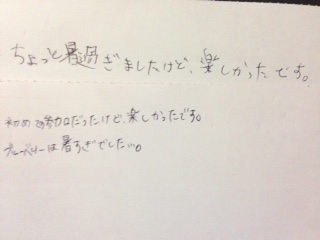 ちょっと暑過ぎましたけど、楽しかったです。
初めて参加だったけど、楽しかったです。
ブルーベリーは暑すぎでした。